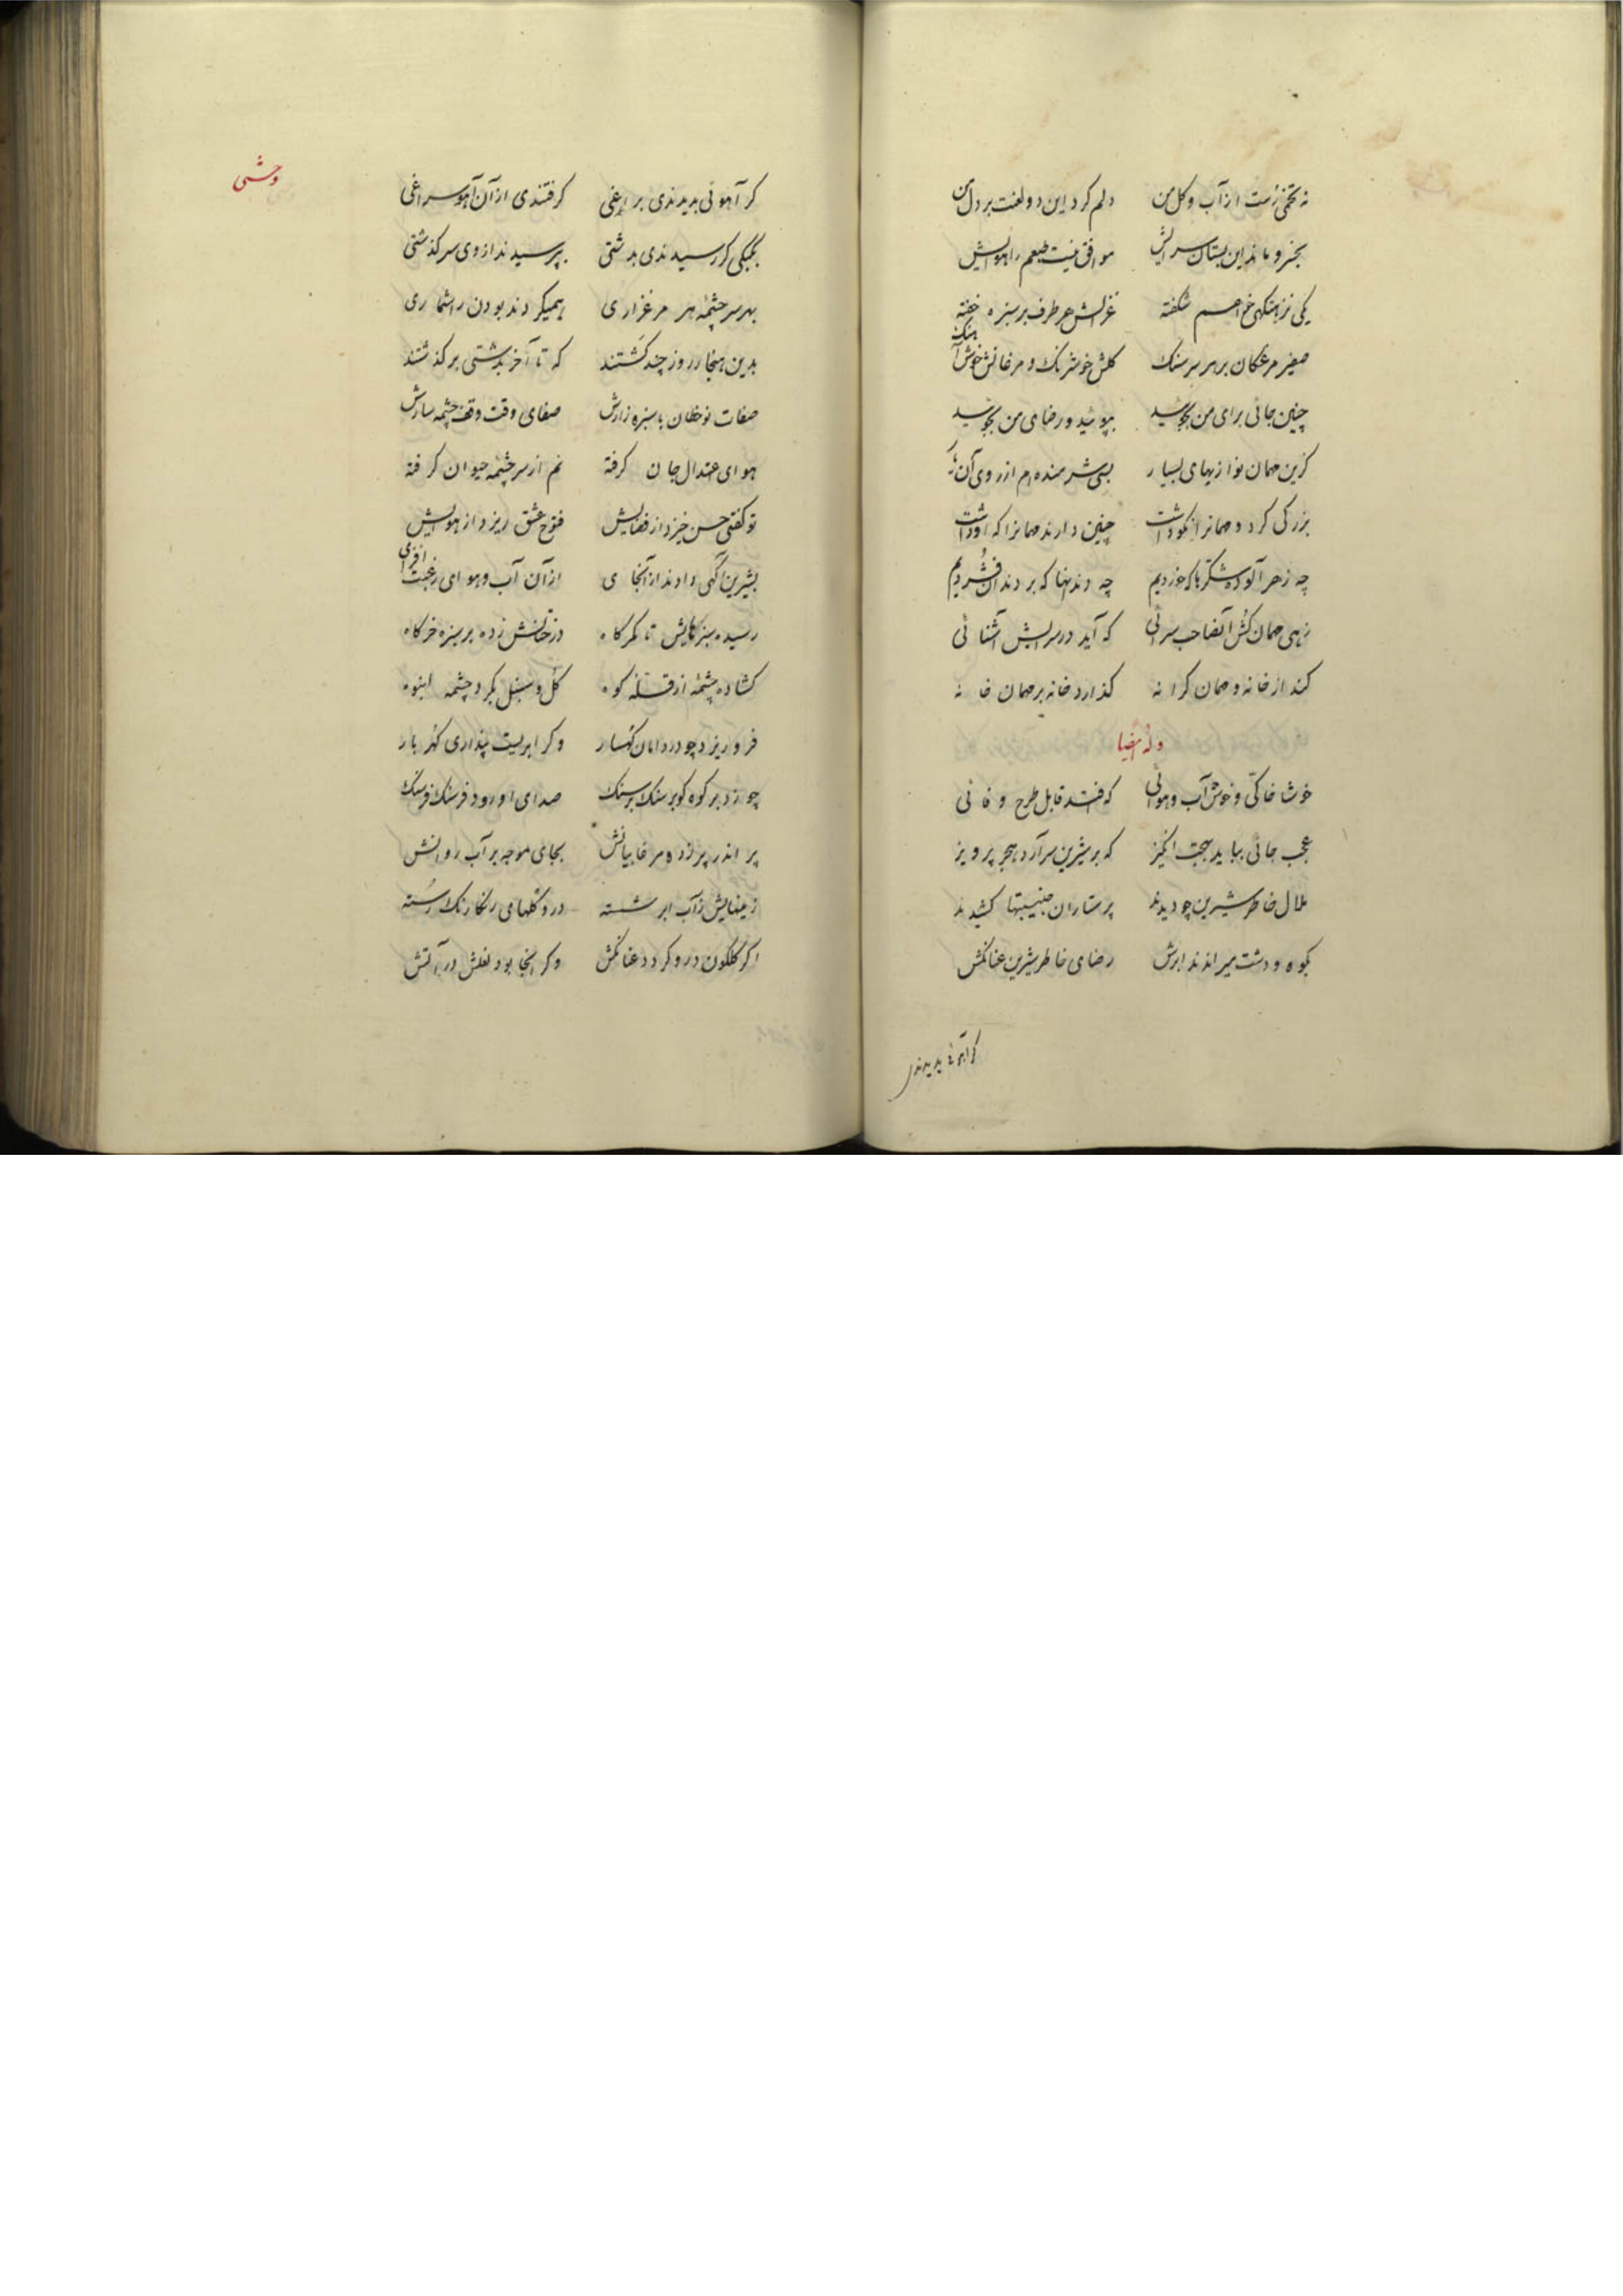 نه تخمی رست از آب و گل من دلم کرد این دو لعنت بر دل من
بخسرو ماند این بستان سرایش موافق نیست طبعم را هوایش
یکی نزهتگهی خواهم شکفته غزالش هر طرف بر سبزه خفته
صفیر مرغکان بر هر سر سنک کلش خوشرنک و مرغانش خوش آهنک
چنین جائی برای من بجوئید بپوئید و رضای من بجوئید
کزین مهمان نوازیهای بسیار بسی شرمنده‌ام از روی آن یار
بزرکی کرد و مهمانرا نکو داشت چنین دارند مهمانرا که او داشت
چه زهر آلوده شکرها که خوردیم چه دندانها که بر دندان فشردیم
زهی مهمان کش آنصاحب سرائی که آید در سرایش آشنائی
کند از خانه و مهمان کرانه کذارد خانه بر مهمان خانه
وله ایضا
خوشا خاکی و خوش آب و هوائی که افتد قابل طرح وفائی
عجب جائی بباید بهجت انکیز که بر شیرین سرآرد هجر پرویز
ملال خاطر شیرین چو دیدند پرستاران جنیبتها کشیدند
بکوه و دشت میراندند ابرش رضای خاطر شیرین عنانکش
کر آهوئی بدیدند
وحشی
کر آهوئی بدیدندی براغی کرفتندی از آن آهو سراغی
بکبکی کر رسیدندی بدشتی بپرسیدند از وی سرکذشتی
بهر سر چشمه هر مرغزاری همیکردند بودن را شماری
بدین هنجار روز چند کشتند که تا آخر بدشتی برکذشتند
صفات نوخطان با سبزه زارش صفای وقت وقف چشمه سارش
هوای اعتدال جان کرفته نم از سر چشمه حیوان کرفته
تو کفتی حسن خیزد از فضایش فتوح عشق ریزد از هوایش
بشیرین آکهی دادند از آنجای از آن آب و هوای رغبت افزای
رسیده سبزهایش تا کمرکاه درختانش زده بر سبزه خرکاه
کشاده چشمه از قله کوه کل و سنبل بکرد چشمه انبوه
فرو ریزد چو در دامان کهسار و کر ابریست پنداری کهربار
چو زد بر کوه کوبر سنک بر سنک صدای او رود فرسنک فرسنک
پر اندر پر زده مرغابیانش بجای موجه بر آب روانش
زمینهایش ز آب ابر شسته در و کلهای رنکارنک رسته
اکر کلکون در و کردد عنانکش و کر آنجا بود نعلش در آتش